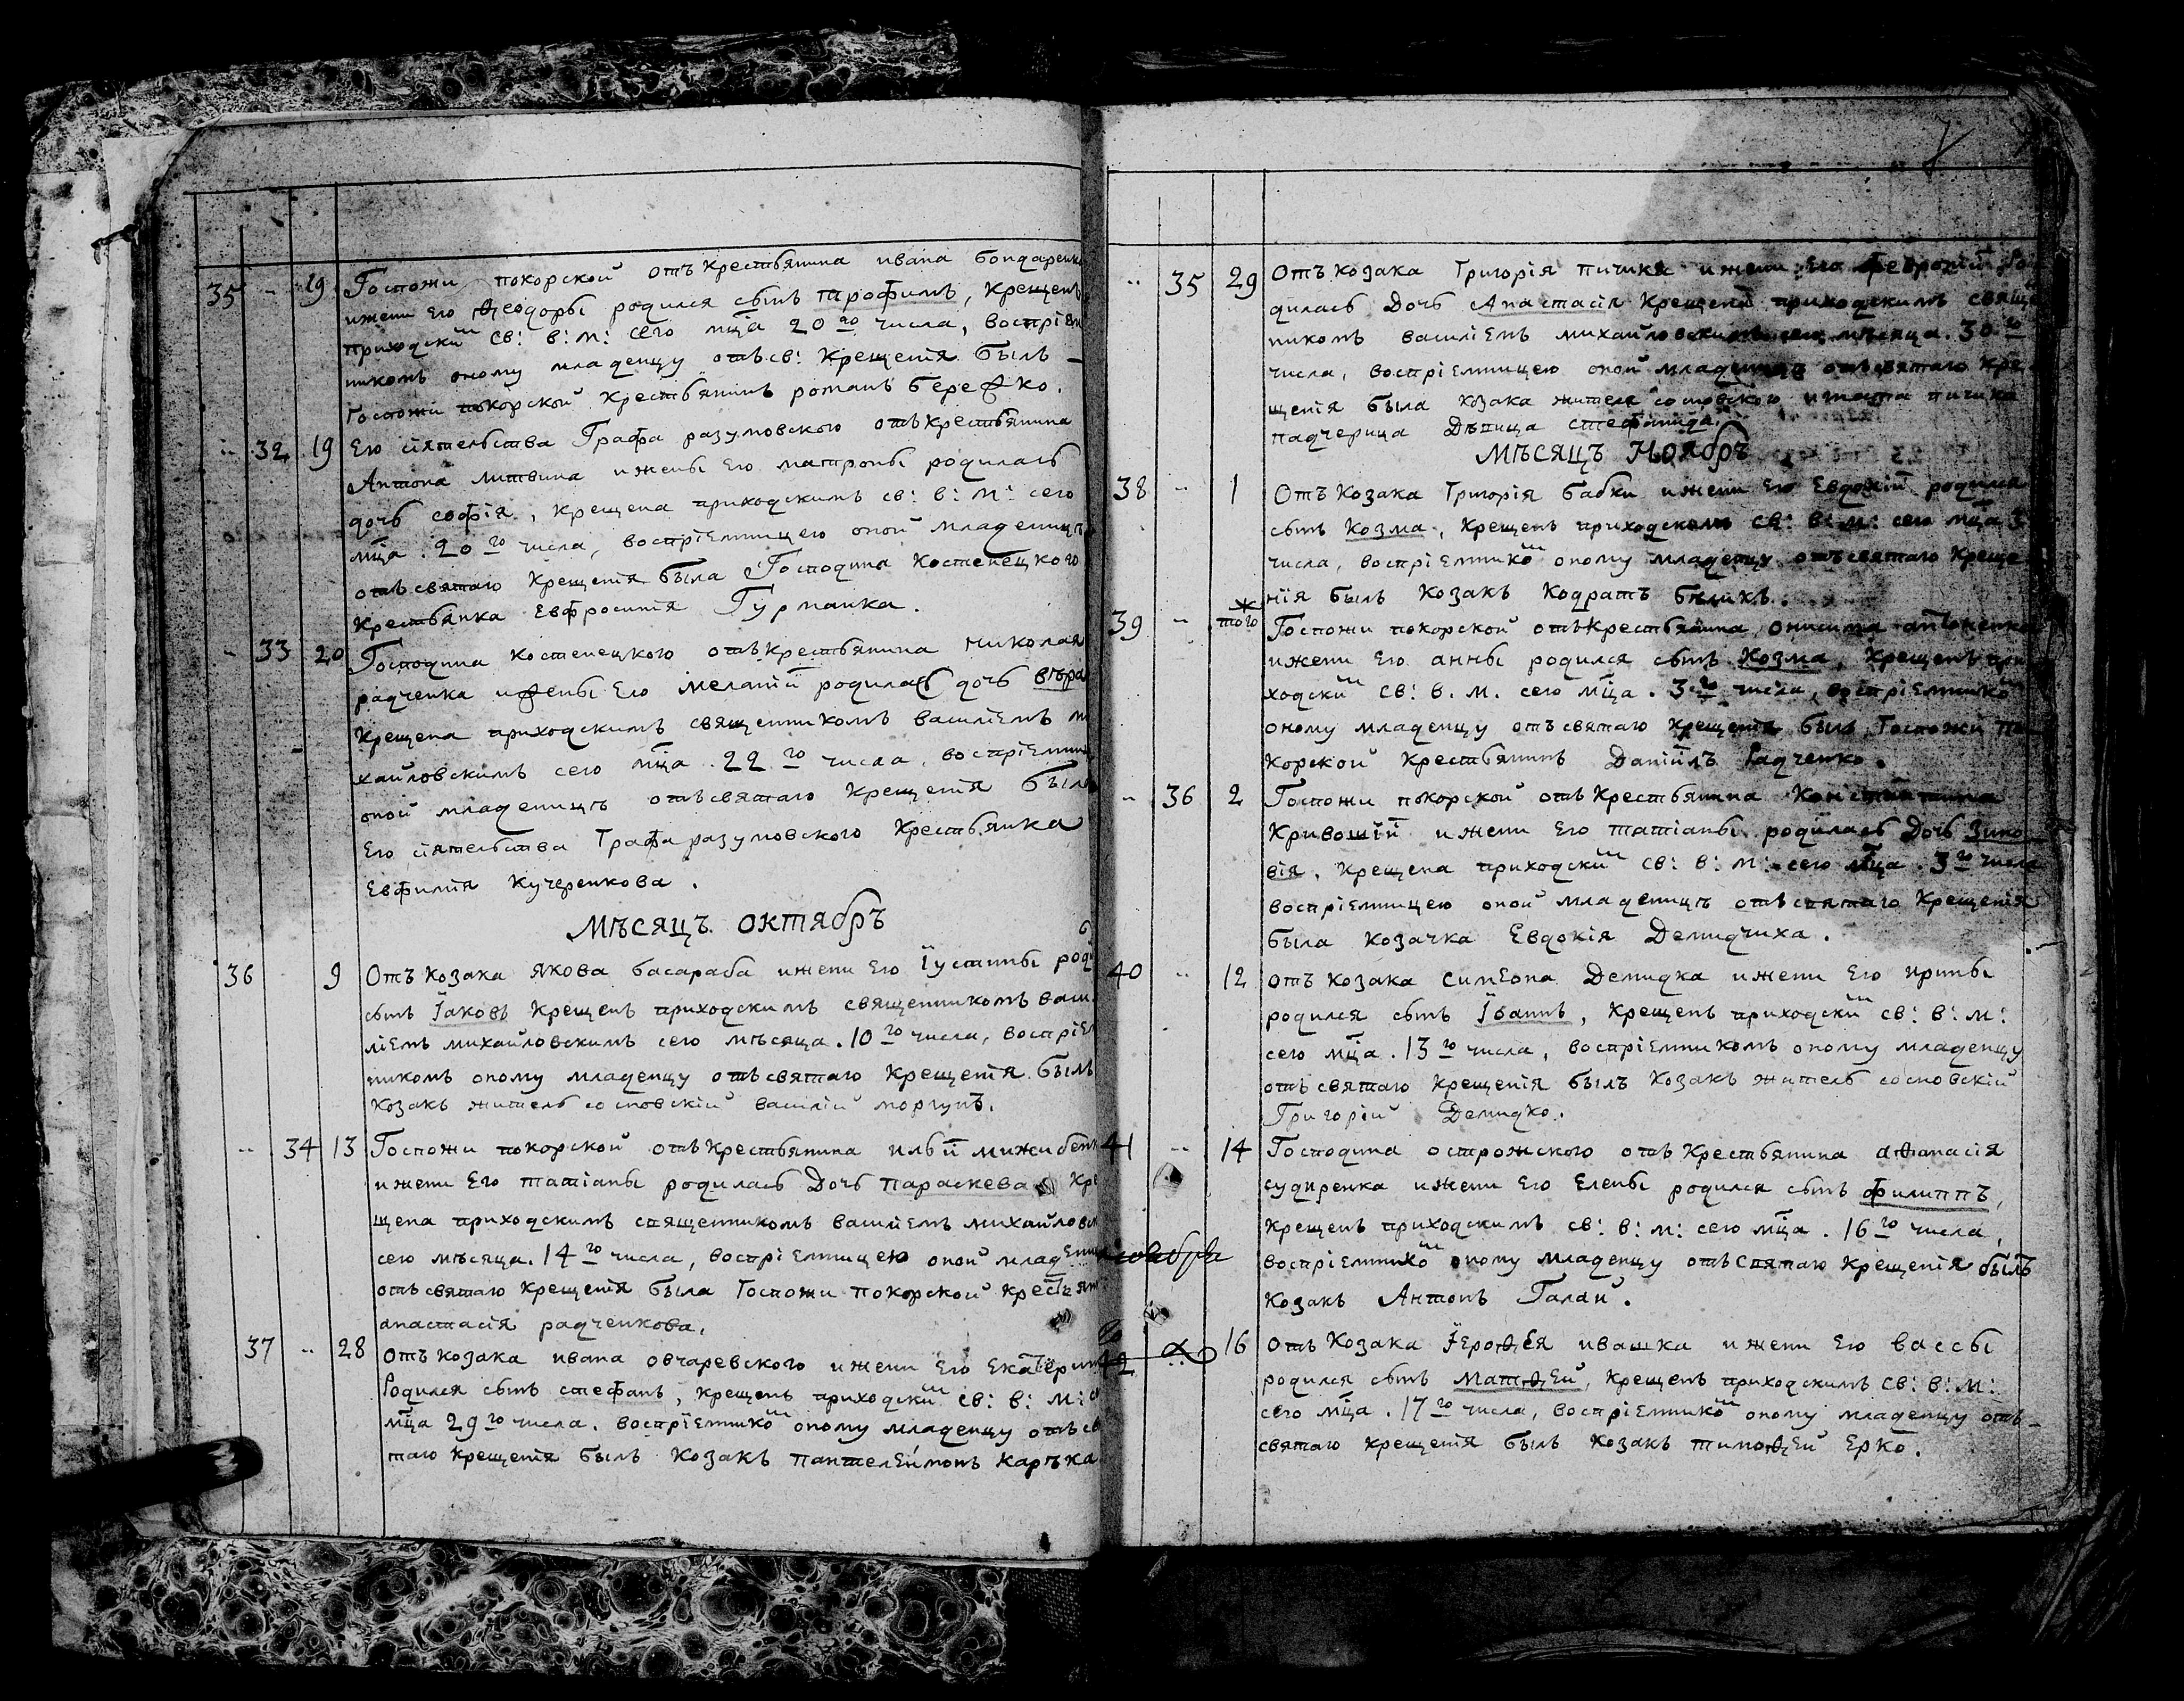 35 " 19 Госпожи покорской отъ крестьянина ивана бондаренк
ижени его Ѳеодоры родился сынъ трофимъ, крещенъ
приходским св: в: м: сего мца 20го числа, воспріем
никомъ оному младенцу отъ св: крещенія былъ
Госпожи покорской крестьянинъ романъ бережко.
" 32 19 Его сіятельства Графа разумовского отъ крестьянина
Антона литвина ижены его матроны родилась
дочь софія, крещена приходскимъ св: в: м: сего
мца 20го числа, воспріемницею оной младеницѣ
отъ святаго крещенія была Господина Костенецкого
крестьянка Евфросинія Гурманка.
" 33 20 Господина костенецкого отъ крестьянина николая
радченка ижены его меланіи родилась дочь вѣра
крещена приходскимъ священникомъ василіемъ ми
хайловскимъ сего мца 22го числа, воспріемни
оной младеницѣ отъ святаго крещенія был
Его сіятельства Графа разумовского крестьянка
Евфимія Кучеренкова.
мѣсяцъ октябръ
36 9 Отъ козака якова басараба ижени его Іустины роди
сынъ Іаковъ крещенъ приходскимъ священникомъ васи
ліемъ михайловскимъ сего мѣсяца. 10го числа, воспріем
никомъ оному младенцу отъ святаго крещенія былъ
козакъ житель сосновскій василій моргунъ.
" 34 13 Госпожи покорской отъ крестьянина ильи
ижени его татіаны родилась Дочь параскева Кре
щена приходскимъ священникомъ василіемъ михайловск
сего мѣсяца. 14го числа, воспріемницею оной младени
отъ святаго крещенія была Госпожи покорской крестьян
анастасія радченкова.
37 " 28 Отъ козака ивана овчаревского ижени его Екатерин
Родился сынъ стефанъ, крещенъ приходским св: в: м: се
мца 29го числа. воспріемником оному младенцу отъ св
таго крещенія былъ козакъ пантелеймонъ каръка
7
" 35 29 Отъ козака Григорія пичика ижени его февроніи ро
дилась Дочь Анастасія крещена приходскимъ священ
никомъ василіемъ михайловскимъ сего мѣсяца. 30го
числа, воспріемницею оной младеницѣ отъ святаго кре
щенія была козака жителя сосновского игната пичика
падчерица Дѣвица стефанида.
мѣсяцъ Ноябръ
38 " 1 Отъ козака Григорія бабки ижени его Евдокіи родился
сынъ козма, крещенъ приходскимъ св: в: м: сего мца 3
числа, воспріемником оному младенцу отъ святаго креще
нія былъ козакъ кодратъ быликъ.
39 " тогож Госпожи покорской отъ крестьянина онисима антоненка
ижени его анны родился сынъ козма, крещенъ при
ходским св: в. м. сего мца. 3го числа, воспріемником
оному младенцу отъ святаго крещенія былъ Госпожи по
корской крестьянинъ Даніилъ Радченко.
" 36 2 Госпожи покорской отъ крестьянина Константина
кривошіи ижени его татіаны родилась Дочь Зино
вія, крещена приходским св: в: м: сего мца. 3го числа
воспріемницею оной младеницѣ отъ святаго крещенія
была козачка Евдокія Демидчиха.
40 " 12 отъ козака симеона Демидка ижени его ирины
родился сынъ Іоаннъ, крещенъ приходским св: в: м:
сего мца. 13го числа, воспріемникомъ оному младенцу
отъ святаго крещенія былъ козакъ житель сосновскій
Григорій Демидко.
41 " 14 Господина острожского отъ крестьянина аѳанасія
судиренка ижени его Елены родился сынъ филиппъ,
крещенъ приходскимъ св: в: м: сего мца. 16го числа,
воспріемником оному младенцу отъ святаго крещенія былъ
козакъ Антонъ Галай.
42 16 отъ козака Іероѳея ивашка ижени его вассы
родился сынъ матѳей, крещенъ приходскимъ св: в: м:
сего мца. 17го числа, воспріемником оному младенцу отъ
святаго крещенія былъ козакъ тимоѳей Ерко.